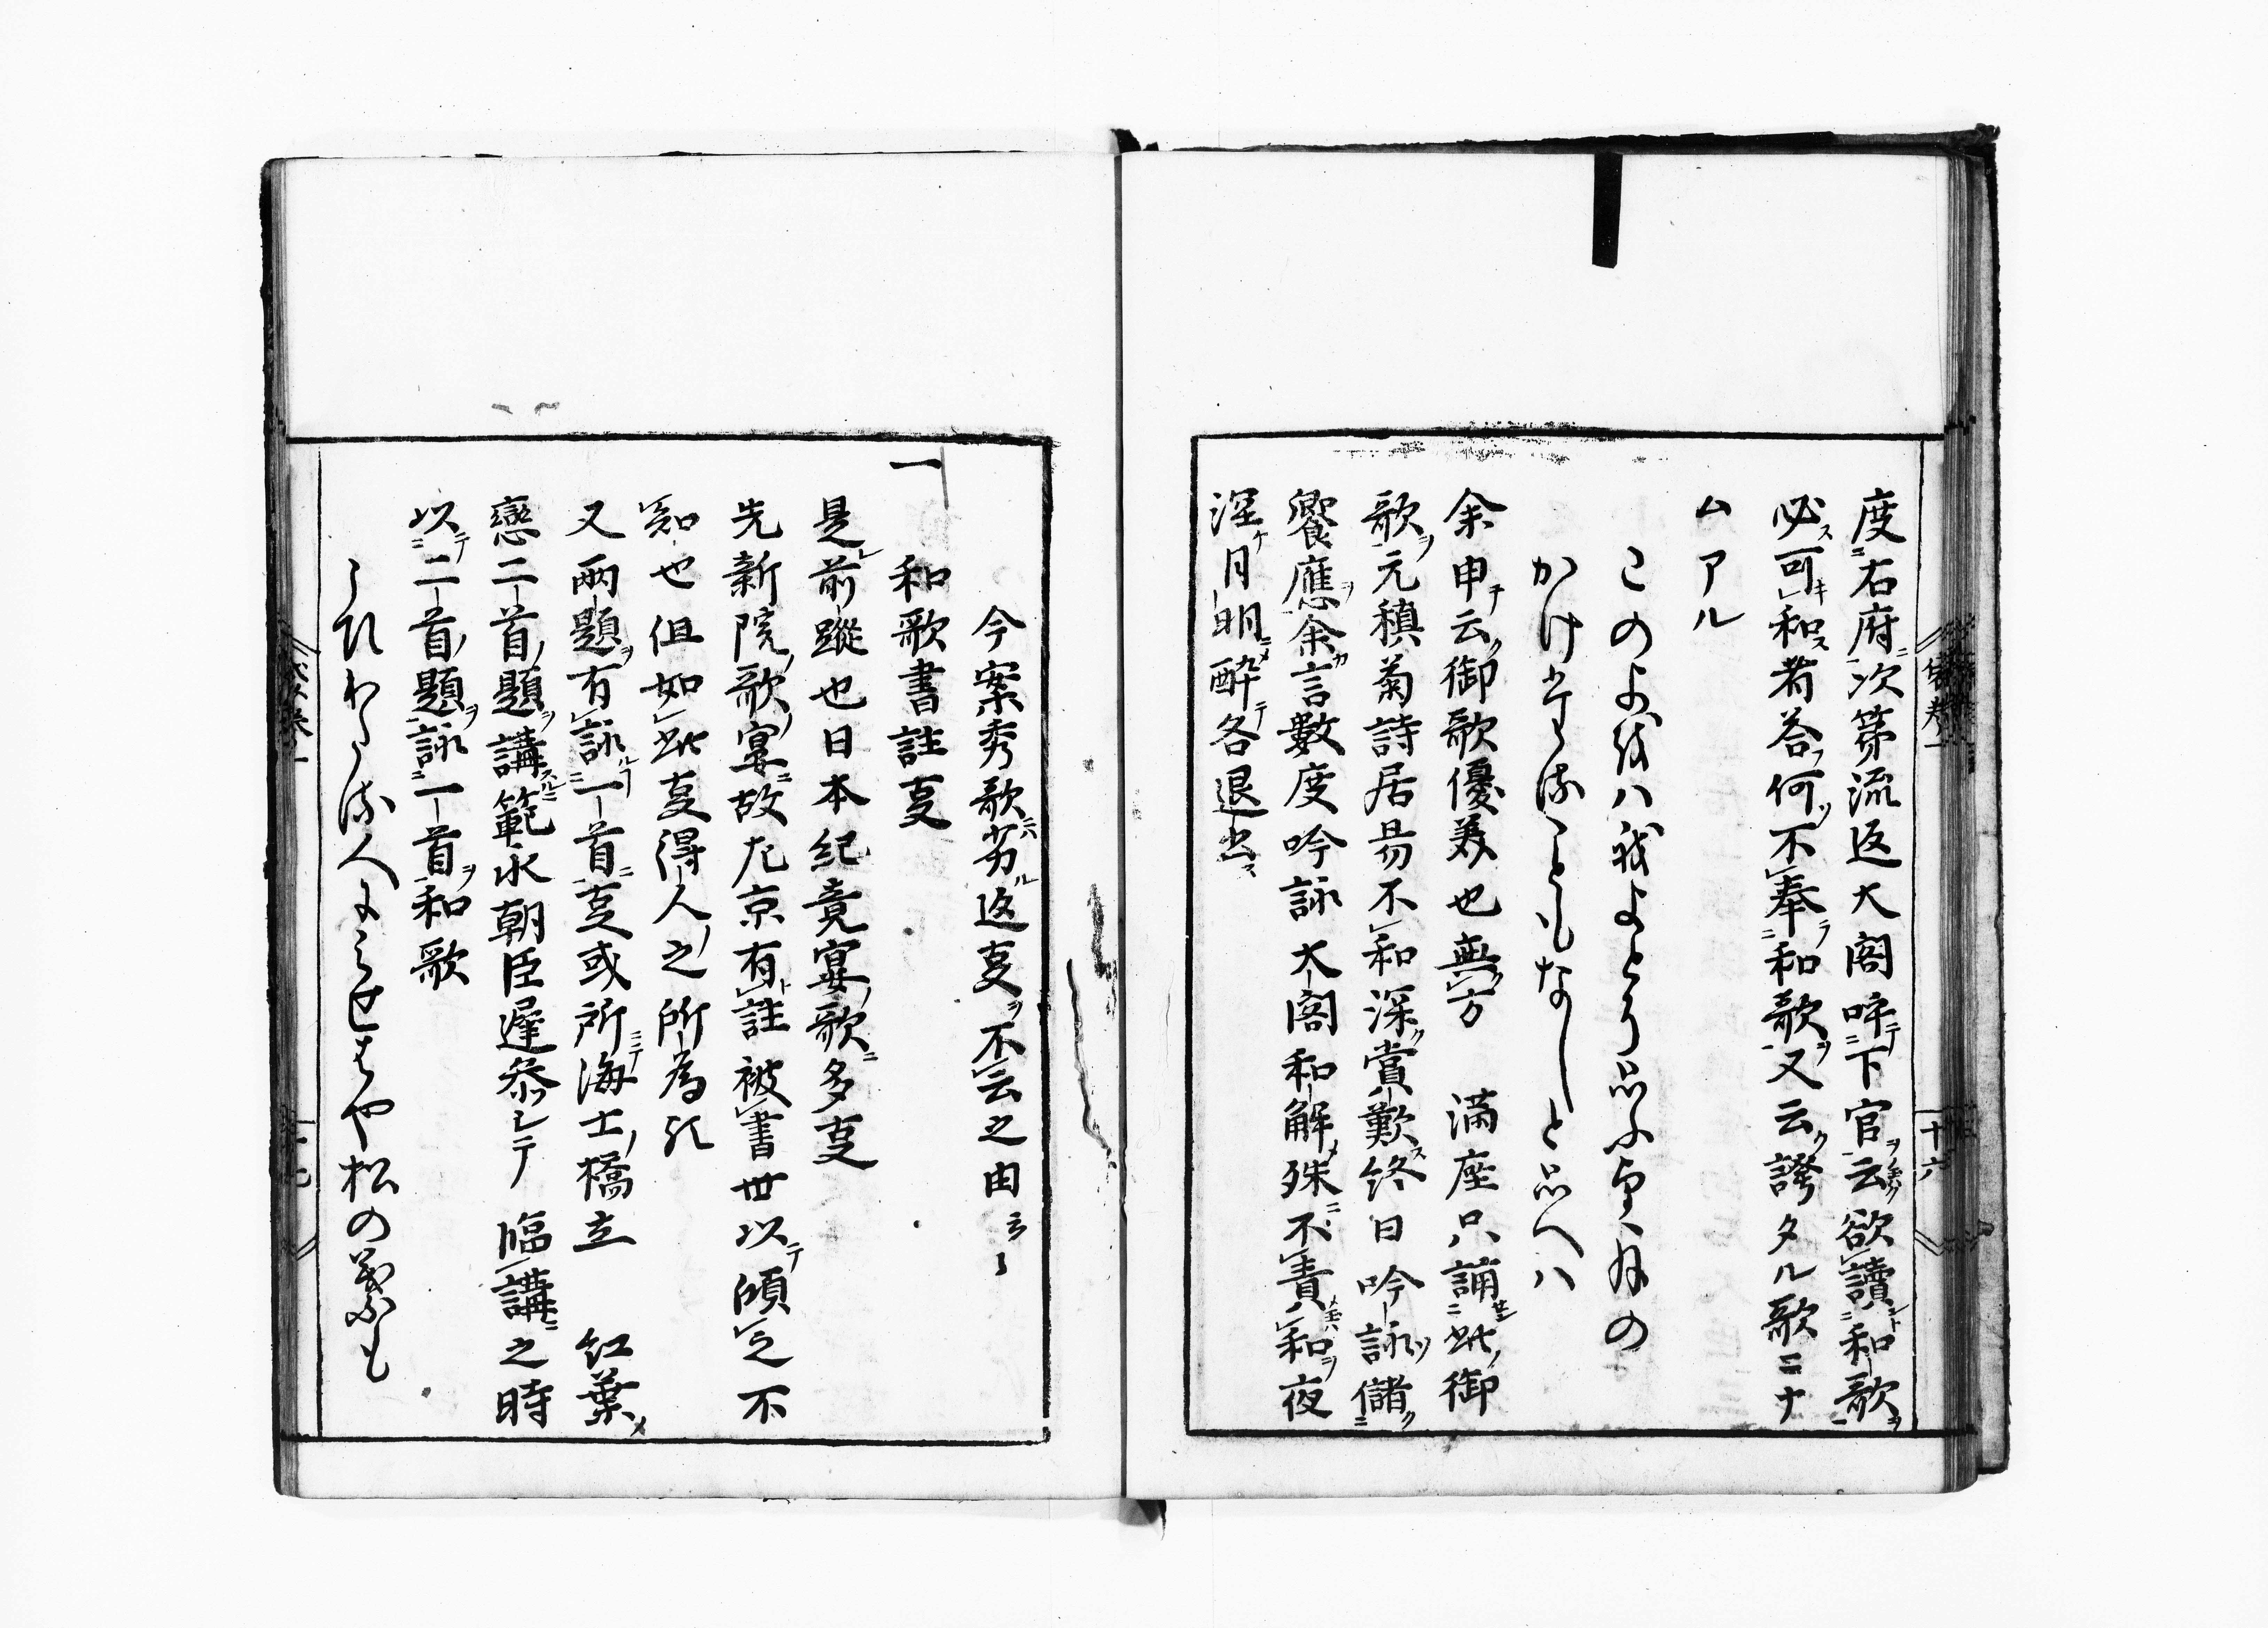 度右府次第流返大閤呼下官云欲讀和歌
必可和者答何不奉和歌又云誇タル歌ニナ
ムアル
このよをは我よとそ思ふ望月の
かけたることもなしと思へハ
余申云御歌優美也無方 満座只誦此御
歌元稹菊詩居易不和深賞歎終日吟詠儲
饗應余言數度吟詠大閤和解殊不責和夜
深月明酔各退出
十六
今案秀歌劣返叓不云之由云〻
一 和歌書註叓
是前蹤也日本紀竟宴歌多叓
先新院歌宴故左京有註被書世以傾之不
知也但如此叓得人之所為歟
又両題有詠一首叓或所海士橋立 紅葉
戀二首題講範永朝臣遅参シテ 臨講之時
以二首題詠一首和歌
こひわたる人にみせはや松の葉も